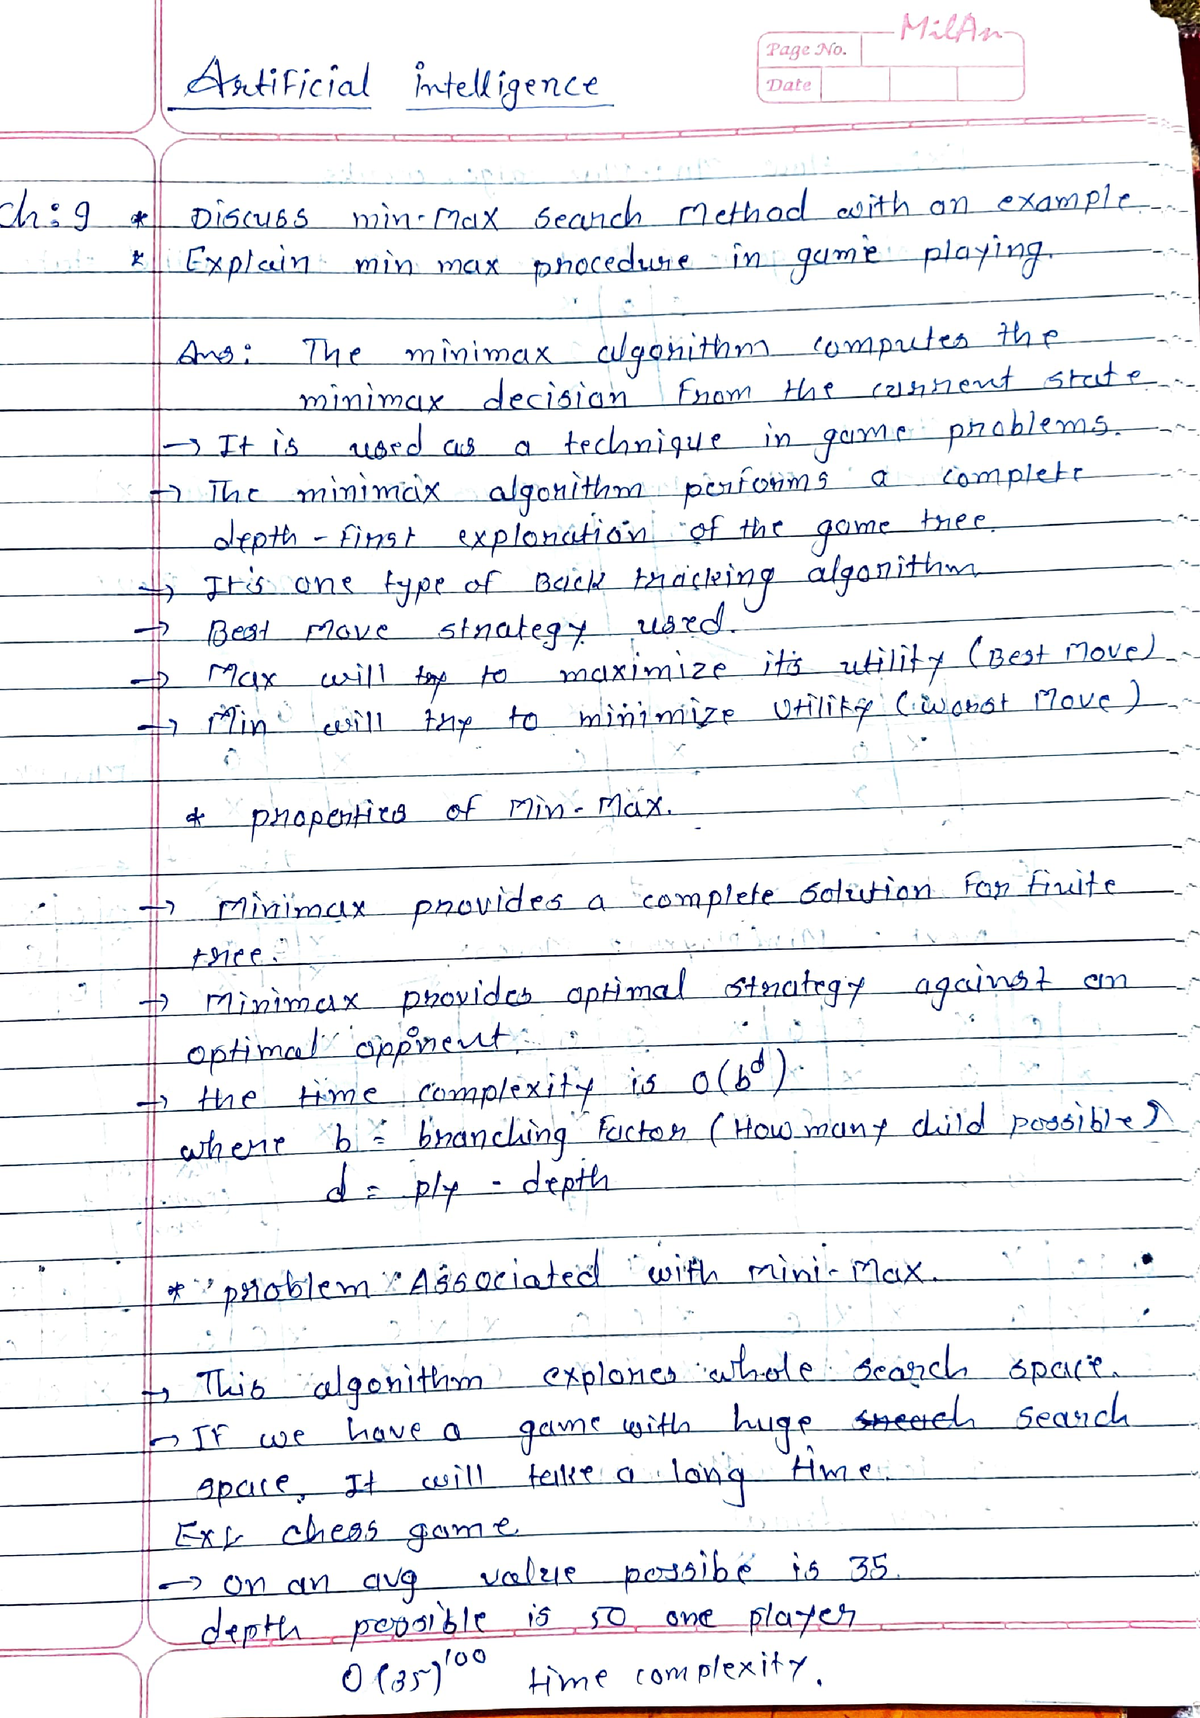 MilAn
Page No.
Date
Artificial intelligence
ch:9 * Discuss min-max search method with an example.
* Explain min max procedure in game playing.
Ans: The minimax algorithm computes the
minimax decision from the current state
→ It is used as a technique in game problems.
→ The minimax algorithm performs a complete
depth-first exploration of the game tree.
→ It is one type of Back tracking algorithm
→ Best move strategy used.
→ Max will try to maximize its utility (Best Move)
→ Min will try to minimize utility (worst Move)
* properties of Min-Max.
→ Minimax provides a complete solution for finite
tree.
→ Minimax provides optimal strategy against an
optimal opponent.
→ the time complexity is O(b^d)
where b = branching factor (How many child possible)
d = ply - depth
* problem Associated with mini-Max.
→ This algorithm explores whole search space.
→ If we have a game with huge search
space, It will take a long time.
Ex:- chess game.
→ on an avg value possibe is 35.
depth possible is 50 one player
O(35)^100 time complexity.